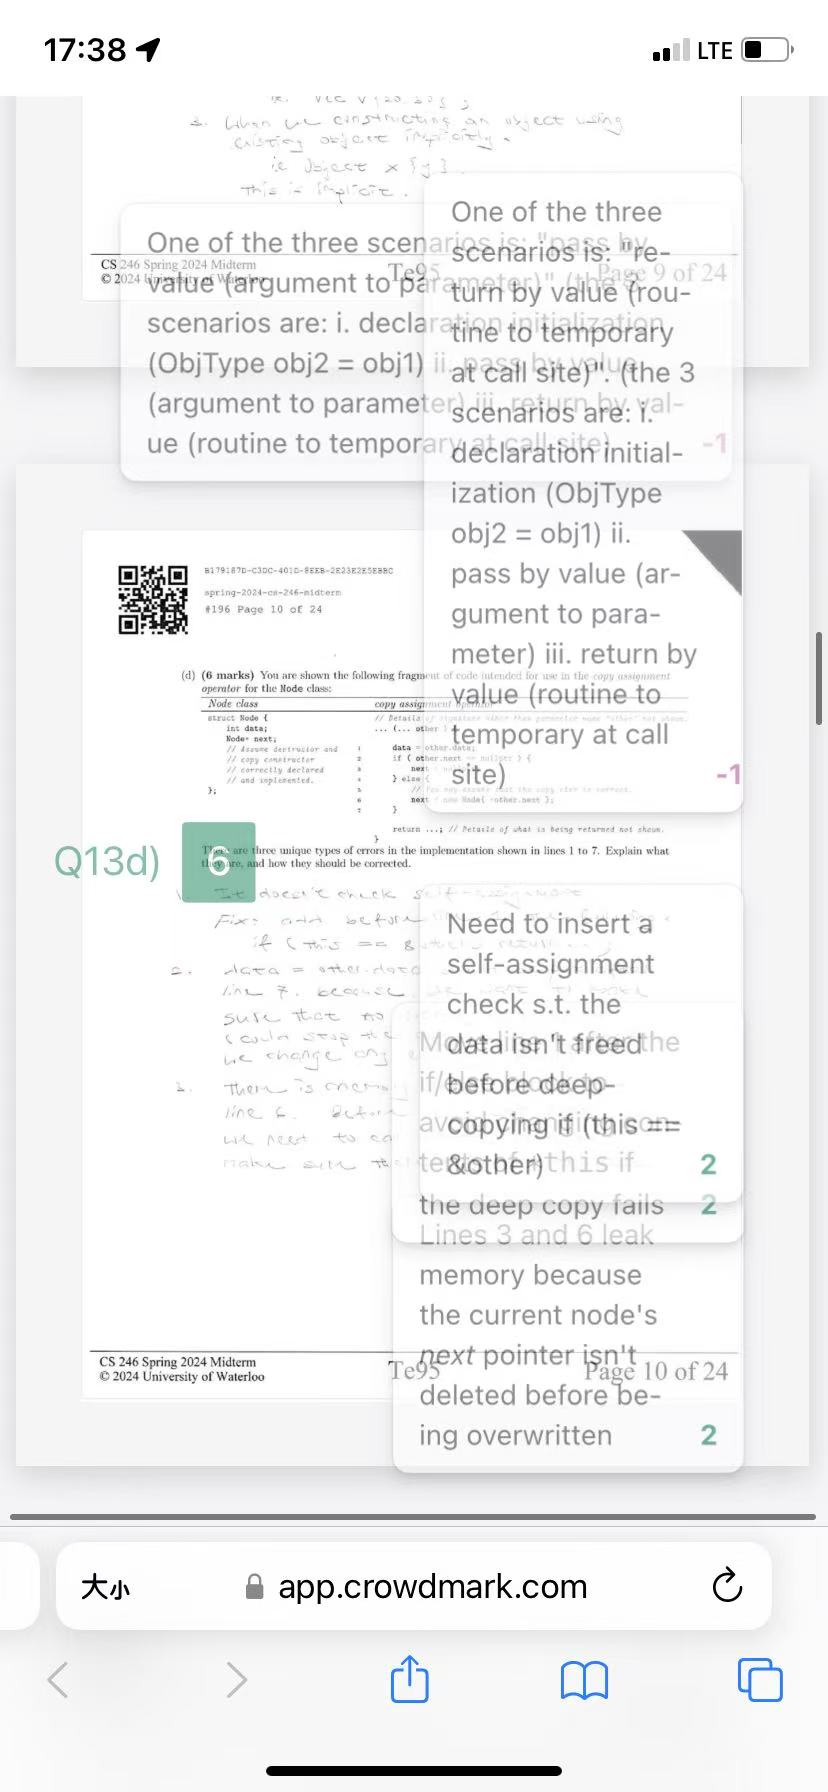 17:38
LTE
3. When we constructing an object using
existing object implicitly.
ie Object x {y}
This is implicit.
One of the three scenarios is: "pass by
value (argument to parameter)" (the 3
scenarios are: i. declaration initialization
(ObjType obj2 = obj1) ii. pass by value
(argument to parameter) iii. return by val-
ue (routine to temporary at call site)
-1
One of the three
scenarios is: "re-
turn by value (rou-
tine to temporary
at call site)". (the 3
scenarios are: i.
declaration initial-
ization (ObjType
obj2 = obj1) ii.
pass by value (ar-
gument to para-
meter) iii. return by
value (routine to
temporary at call
site)
-1
CS 246 Spring 2024 Midterm
© 2024 University of Waterloo
Te95
Page 9 of 24
spring-2024-cs-246-midterm
#196 Page 10 of 24
(d) (6 marks) You are shown the following fragment of code intended for use in the copy assignment
operator for the Node class:
Node class
copy assignment operator
struct Node {
int data;
Node* next;
// Assume destructor and
// copy constructor
// correctly declared
// and implemented.
};
// Details of signature other than parameter name "other" not shown.
... (... other
1 data = other.data;
2 if ( other.next == nullptr ) {
3 next
4 } else {
5 // You may assume that the copy ctor is correct.
6 next = new Node{ *other.next };
7 }
return ...; // Details of what is being returned not shown.
}
There are three unique types of errors in the implementation shown in lines 1 to 7. Explain what
they are, and how they should be corrected.
Q13d) 6
1. It doesn't check self-assignment
Fix: add before
if (this == &
2. data = other.data
line 7. because
sure that no
could stop the
we change any
3. There is memory
line 6. Before
we need to
make sure
Need to insert a
self-assignment
check s.t. the
data isn't freed
before deep-
copying if (this ==
&other)
2
Move line 1 after the
if/else block to
avoid changing con-
tents of *this if
the deep copy fails
2
Lines 3 and 6 leak
memory because
the current node's
next pointer isn't
deleted before be-
ing overwritten
2
CS 246 Spring 2024 Midterm
© 2024 University of Waterloo
Te95
Page 10 of 24
大小
app.crowdmark.com